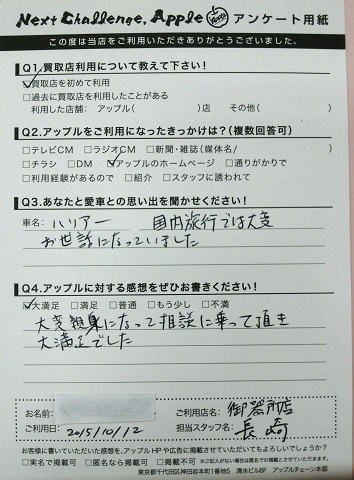 Next Challenge, Apple アンケート用紙
この度は当店をご利用いただきありがとうございました。
Q1.買取店利用について教えて下さい!
☑買取店を初めて利用
□過去に買取店を利用したことがある
利用した店舗: アップル( )店 その他( )
Q2.アップルをご利用になったきっかけは?(複数回答可)
□テレビCM □ラジオCM □新聞・雑誌(媒体名/ )
□チラシ □DM ☑アップルのホームページ □通りがかりで
□利用経験があるので □紹介 □スタッフに誘われて
Q3.あなたと愛車との思い出を聞かせください!
車名: ハリアー 国内旅行では大変
お世話になっていました
Q4.アップルに対する感想をぜひお書きください!
☑大満足 □満足 □普通 □もう少し □不満
大変親身になって相談に乗って頂き
大満足でした
お名前: ご利用店名: 御器所店
ご利用日: 2015/10/12 担当スタッフ名: 長崎
お客様に書いていただいた感想を、アップルHPや広告に掲載させていただいてもよろしいでしょうか?
□実名で掲載可 □匿名なら掲載可 □掲載不可 ※ご記入がない場合は匿名での掲載とさせていただきます。
東京都千代田区神田岩本町1番地5 清水ビル6F アップルチェーン本部